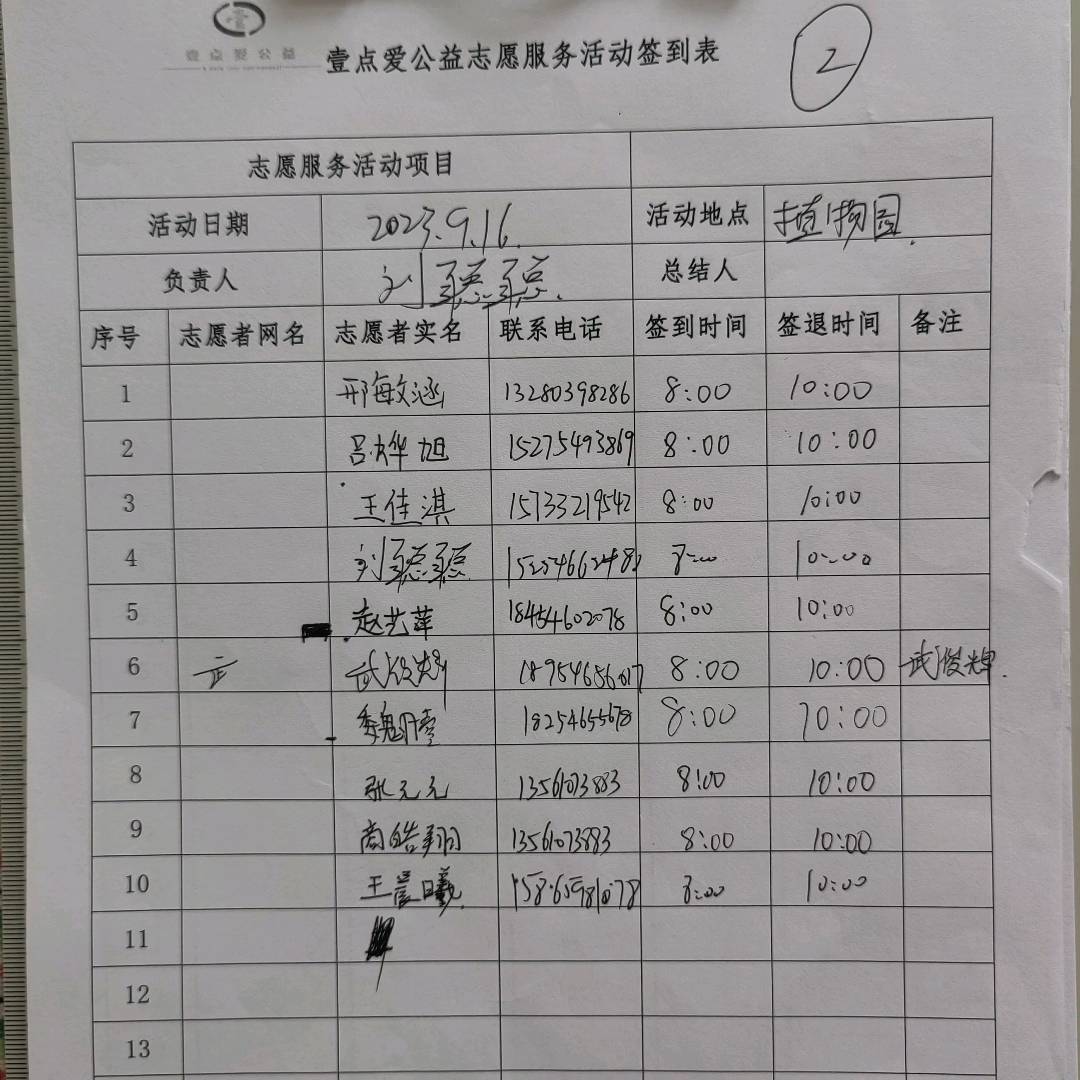 壹点爱公益
壹点爱公益志愿服务活动签到表
2
志愿服务活动项目
活动日期 2023.9.16. 活动地点 植物园.
负责人 刘 总结人
序号 志愿者网名 志愿者实名 联系电话 签到时间 签退时间 备注
1 邢敏涵 13280398286 8:00 10:00
2 吕烨旭 15275493869 8:00 10:00
3 王佳淇 15733219542 8:00 10:00
4 刘 8:00 10:00
5 赵艺萍 18454602078 8:00 10:00
6 武 武俊辉 18954656017 8:00 10:00 武俊辉.
7 魏 18254655678 8:00 10:00
8 张元元 13561073883 8:00 10:00
9 商皓翔 13561073883 8:00 10:00
10 王晨曦 15865981078 8:00 10:00
11
12
13